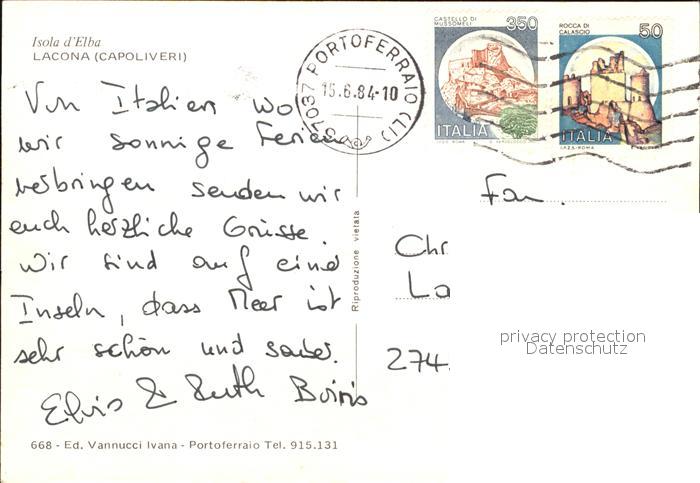 Isola d'Elba
LACONA (CAPOLIVERI)
CASTELLO DI MUSSOMELI
350
ITALIA
ROCCA DI CALASCIO
50
ITALIA
I.P.Z.S.-ROMA
57037 PORTOFERRAIO (LI)
15.6.84-10
Von Italien wo
wir sonnige Ferien
verbringen senden wir
euch herzliche Grüsse.
Wir sind auf eine
Inseln, dass Meer ist
sehr schön und sauber.
Elvis & Ruth
Riproduzione vietata
Fam.
Chr
La
274
privacy protection
Datenschutz
668 - Ed. Vannucci Ivana - Portoferraio Tel. 915.131